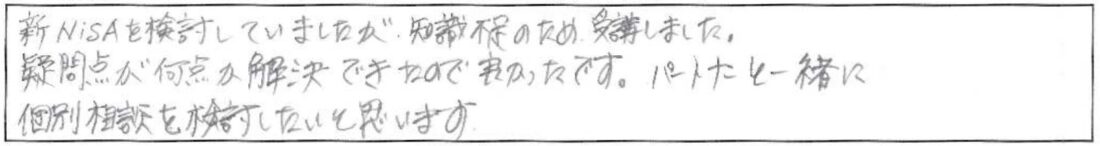 新NiSAを検討していましたが、知識不足のため、受講しました。
疑問点が何点か解決できたので良かったです。パートナーと一緒に
個別相談を検討したいと思います